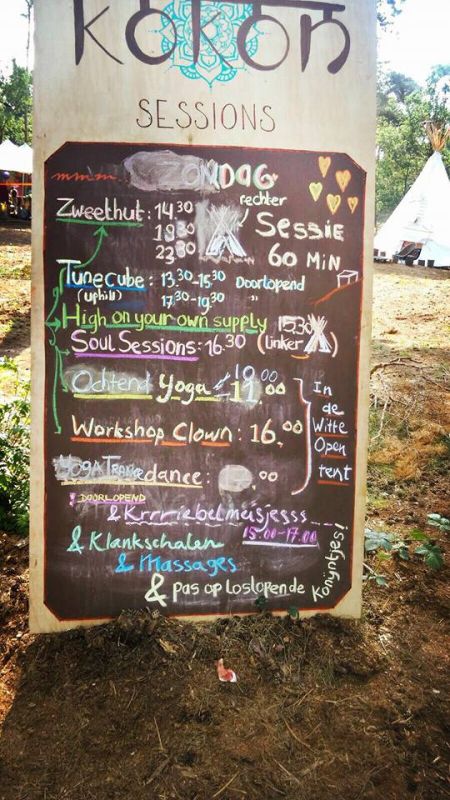 kokon
SESSIONS
ZONDAG
Zweethut: 14.30
19.30
23.30
rechter
Sessie
60 MIN
Tunecube: 13.30-15.30 Doorlopend
(uphill) 17.30-19.30 "
High on your own supply 15.30
Soul Sessions: 16.30 (linker)
Ochtend Yoga 10.00
11.00
Workshop Clown: 16.00
YOGA Trancedance: 00
In
de
Witte
Open
tent
! DOORLOPEND
& Krrriebelmeisjesss...
15.00-17.00
& Klankschalen
& Massages
& pas op loslopende
Konijntjes!